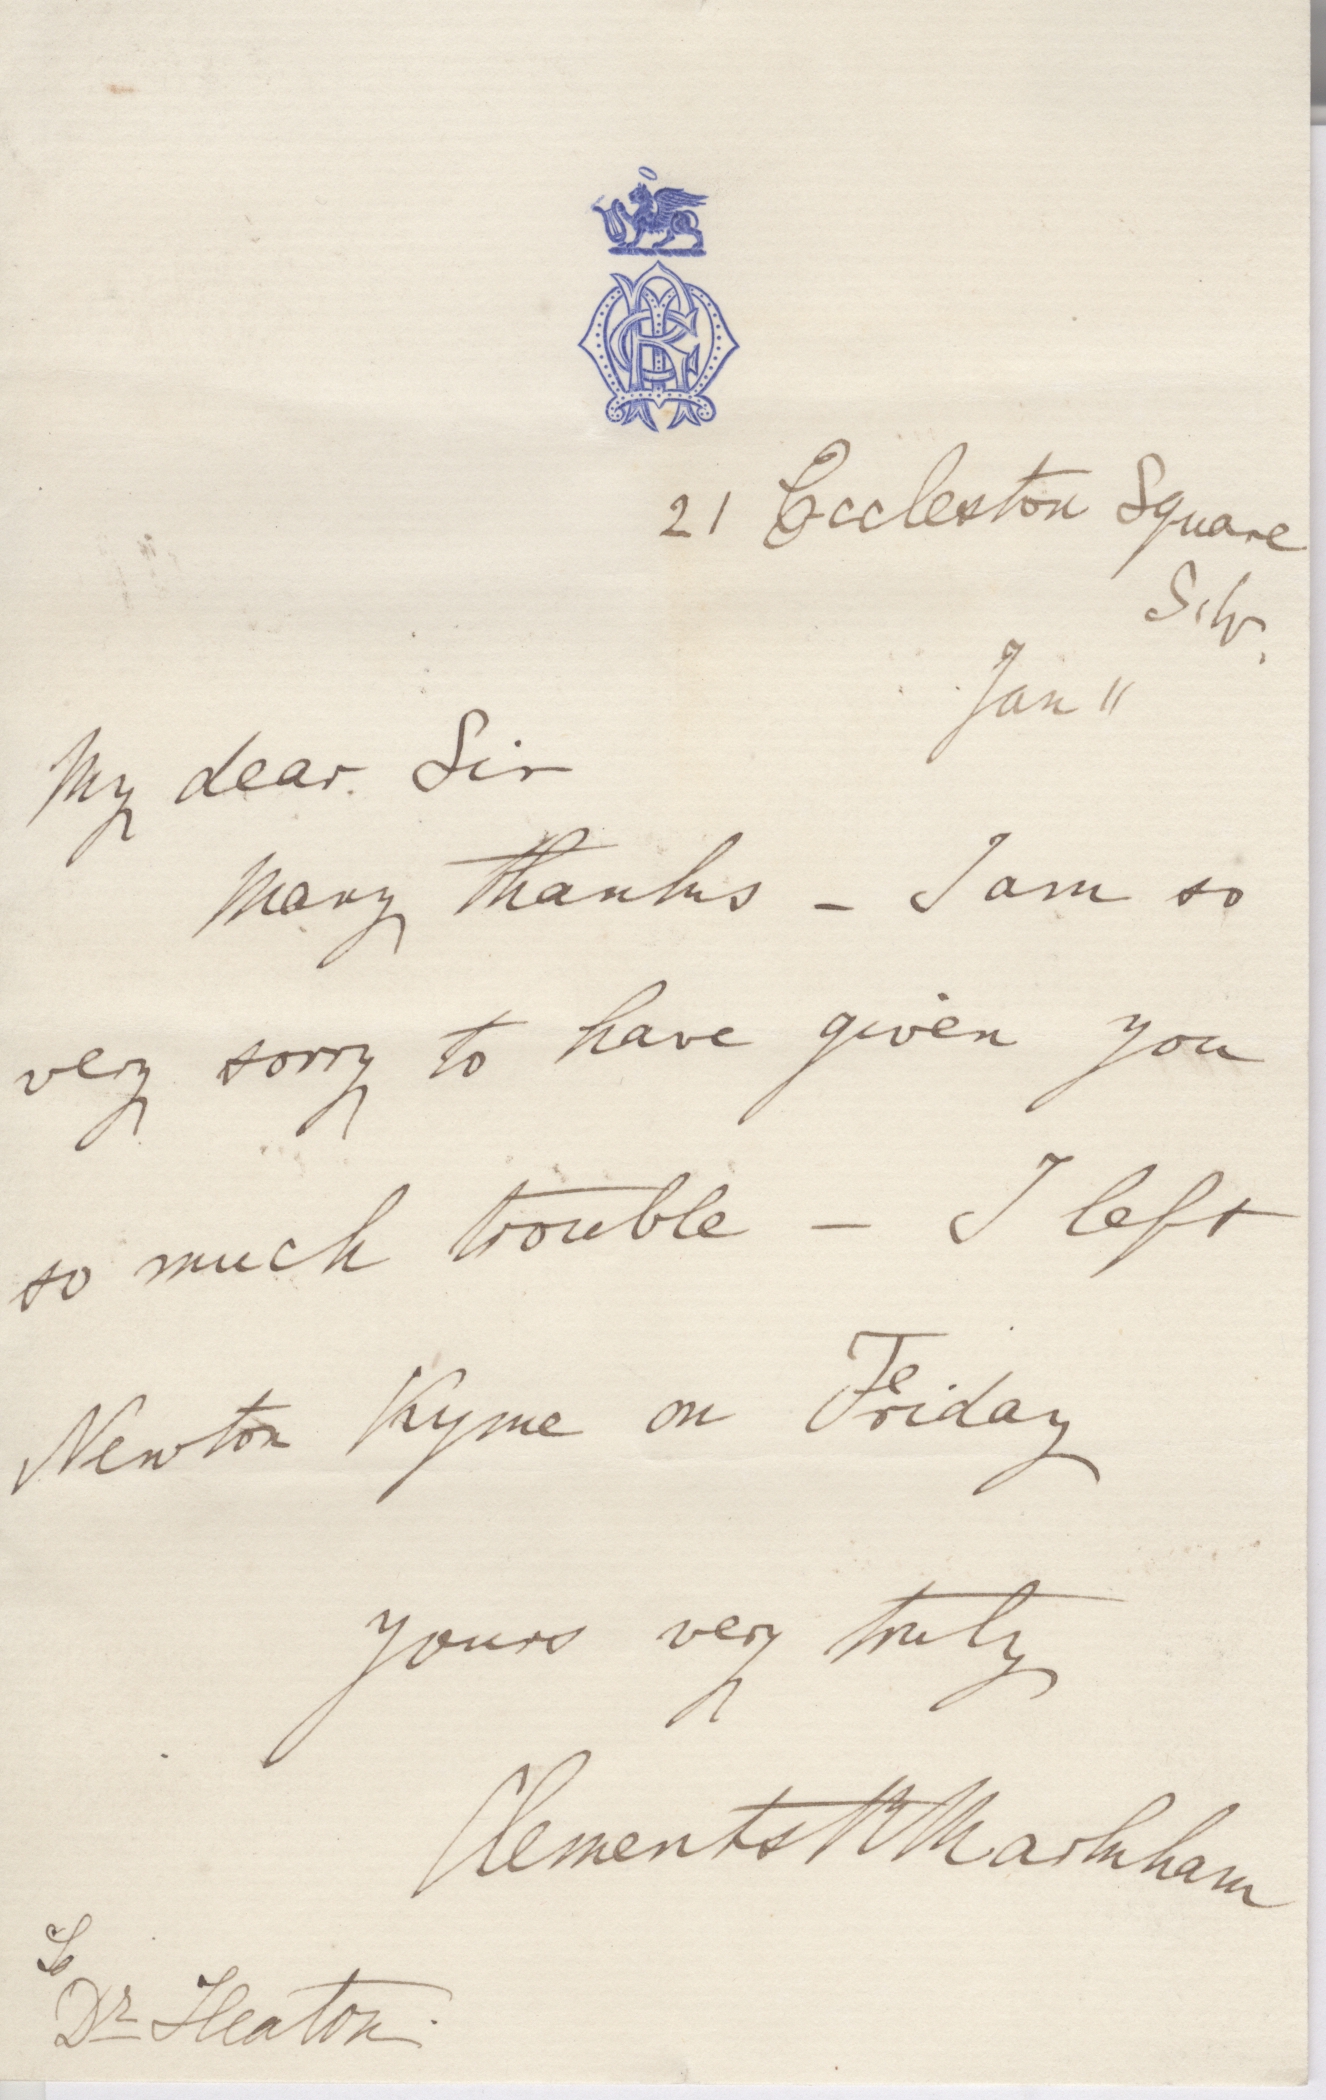 21 Eccleston Square
S.W.
Jan 11
My dear Sir
Many thanks – I am so
very sorry to have given you
so much trouble – I left
Newton Kyme on Friday
yours very truly
Clements R Markham
To
Dr Heaton.